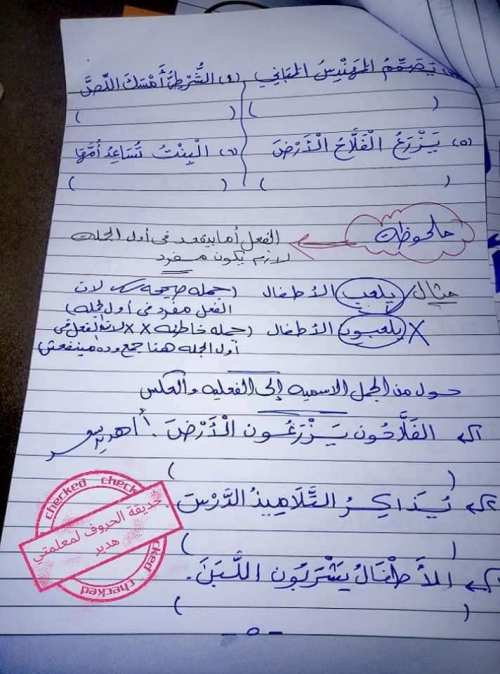 يُصَمِّمُ المُهَنْدِسُ المَبَانِي
(٤) الشُّرْطِىُّ أَمْسَكَ اللِّصَّ
( )
( )
(٥) يَزْرَعُ الْفَلَّاحُ الْأَرْضَ
(٦) الْبِنْتُ تُسَاعِدُ أُمَّهَا
( )
( )
ملحوظة
الفعل أما بيقعد فى أول الجملة
لازم يكون مفرد
مثال / يلعب الأطفال (جملة صحيحة لان
الفعل مفرد فى أول الجملة)
X يلعبون الأطفال (جملة خاطئة XX لانه الفعل فى
أول الجملة هنا جمع وده مينفعش)
حول من الجمل الاسمية إلى الفعلية والعكس
١- الفَلَّاحُون يَزْرَعُون الْأَرْضَ.
( )
٢- يُذَاكِرُ التَّلَامِيذُ الدَّرْسَ
( )
٣- الأَطْفَالُ يَشْرَبُون اللَّبَنَ.
( )
checked
حديقة الحروف لمعلمتي
هدير
checked
- ٥ -